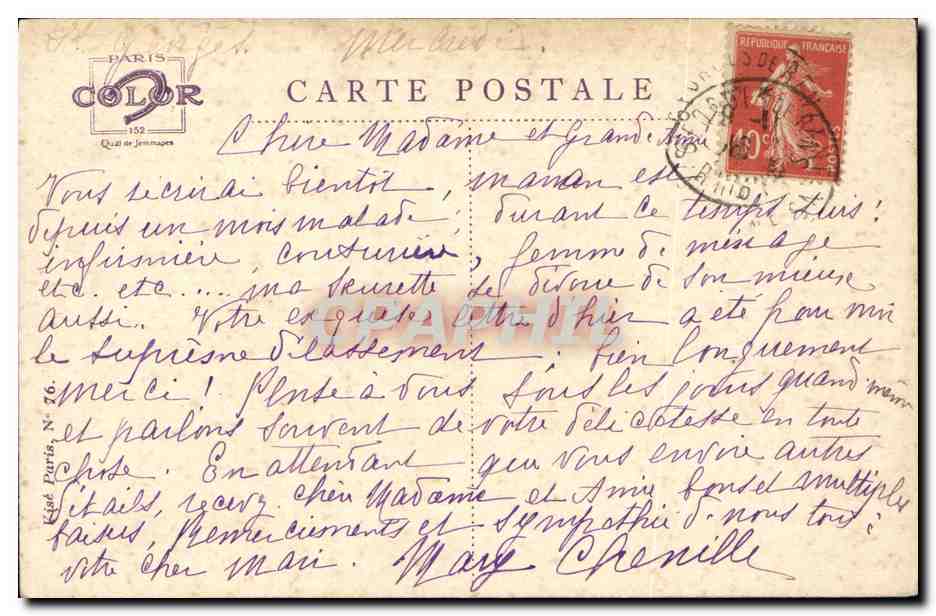 St Georges. Mercredi.
PARIS
COLOR
152
Quai de Jemmapes
CARTE POSTALE
REPUBLIQUE FRANÇAISE
10 c
Chère Madame et Grande Amie
Vous écrirai bientôt, maman est
depuis un mois malade; durant ce temps suis:
infirmière, couturière, femme de ménage
etc. etc.... ma Seurette se dévoue de son mieux
aussi. Votre exquise lettre d'hier a été pour moi
le suprême délassement; bien longuement
merci! Pense à vous tous les jours quand même
et parlons souvent de votre délicatesse en toute
chose. En attendant que vous envoie autres
détails, recevez chère Madame et Amie bons et multiples
baisers, Remerciements et sympathie de nous tous à
votre cher Mari. Marg Chenille
Visé Paris, N° 76.
CPAPHIL